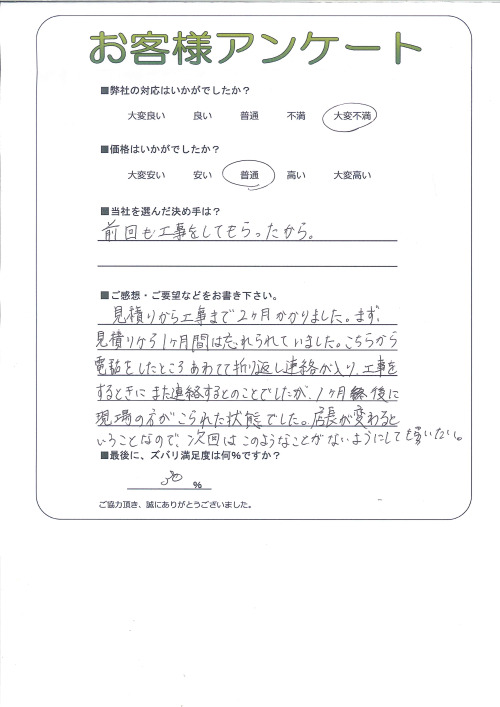 お客様アンケート
■弊社の対応はいかがでしたか?
大変良い 良い 普通 不満 大変不満
■価格はいかがでしたか?
大変安い 安い 普通 高い 大変高い
■当社を選んだ決め手は?
前回も工事をしてもらったから。
■ご感想・ご要望などをお書き下さい。
見積りから工事まで2ヶ月かかりました。まず、
見積りから1ヶ月間は忘れられていました。こちらから
電話をしたところあわてて折り返し連絡が入り、工事を
するときにまた連絡するとのことでしたが、1ヶ月後に
現場の方がこられた状態でした。店長が変わると
いうことなので、次回はこのようなことがないようにしても貰いたい。
■最後に、ズバリ満足度は何%ですか?
30 %
ご協力頂き、誠にありがとうございました。